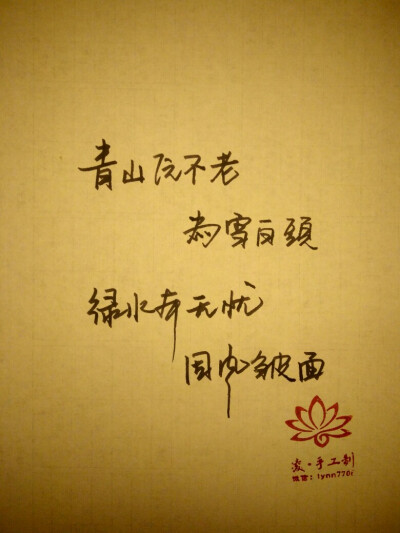 青山原不老
为雪白頭
绿水本无忧
因风皱面
凌·手工制
微信：lynn770i